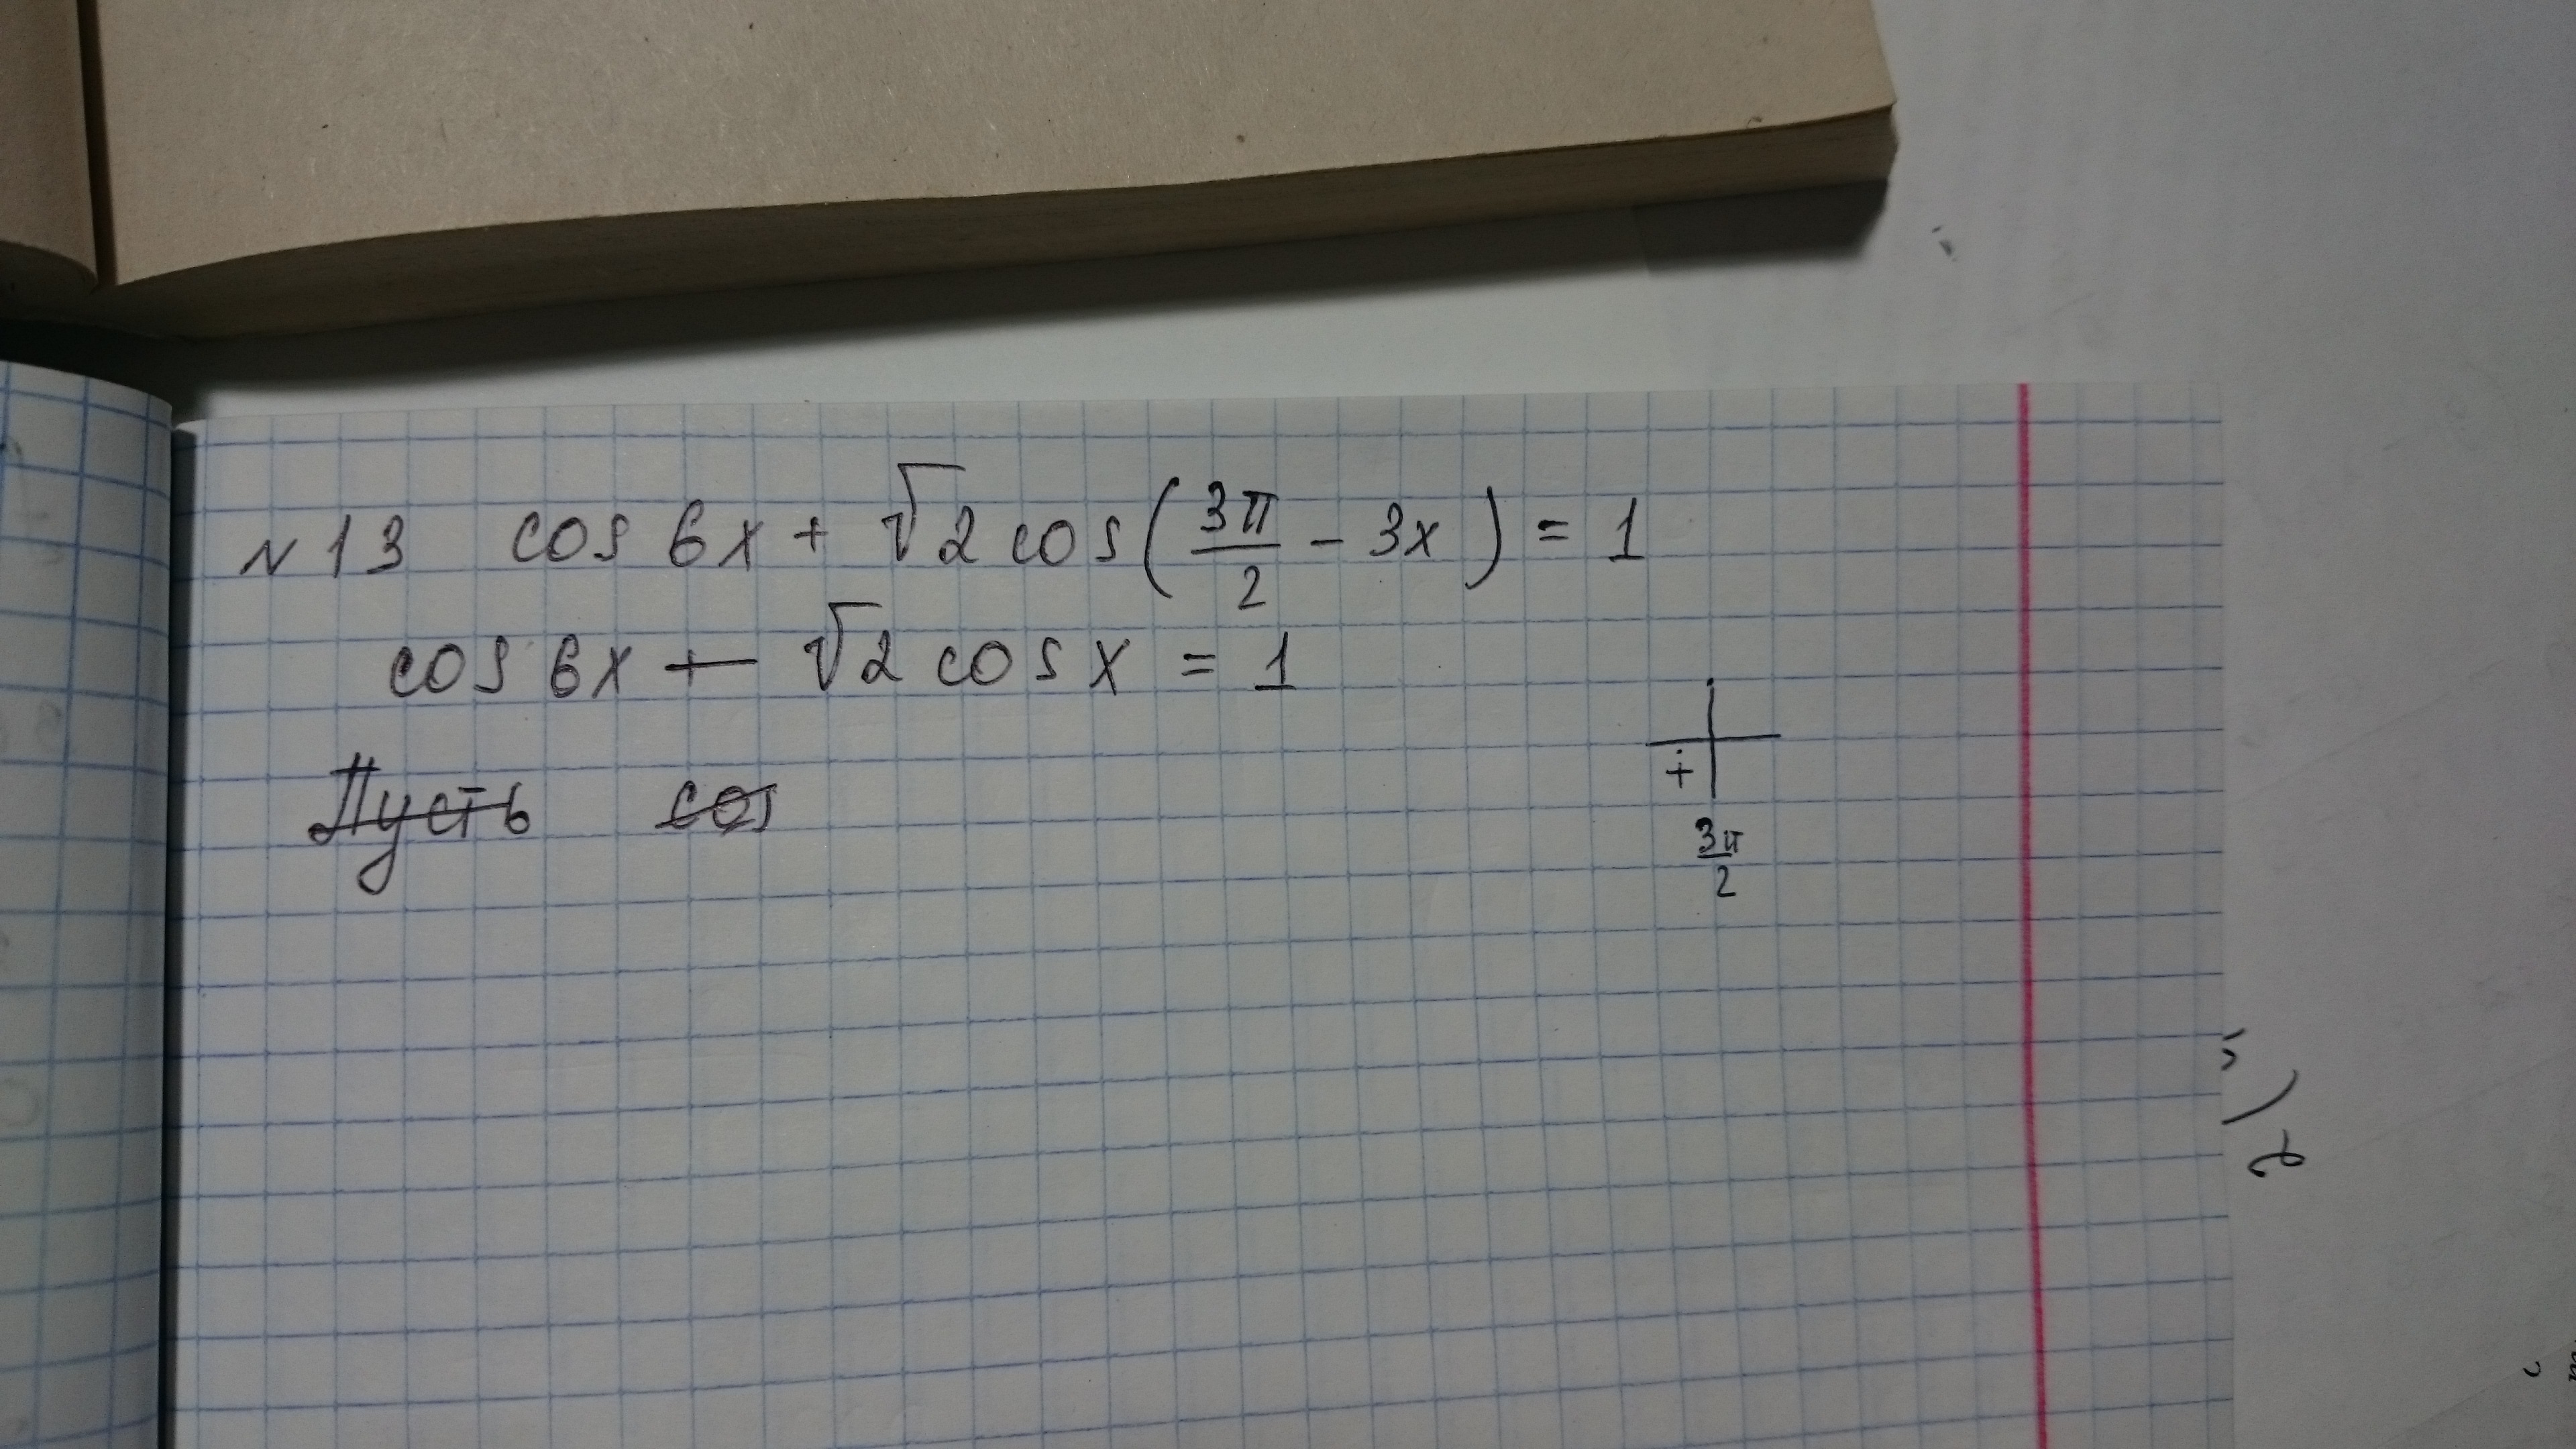 N 13 cos 6x + √2 cos(3π/2 - 3x) = 1
cos 6x + √2 cos x = 1
Пусть cos
+
3π/2